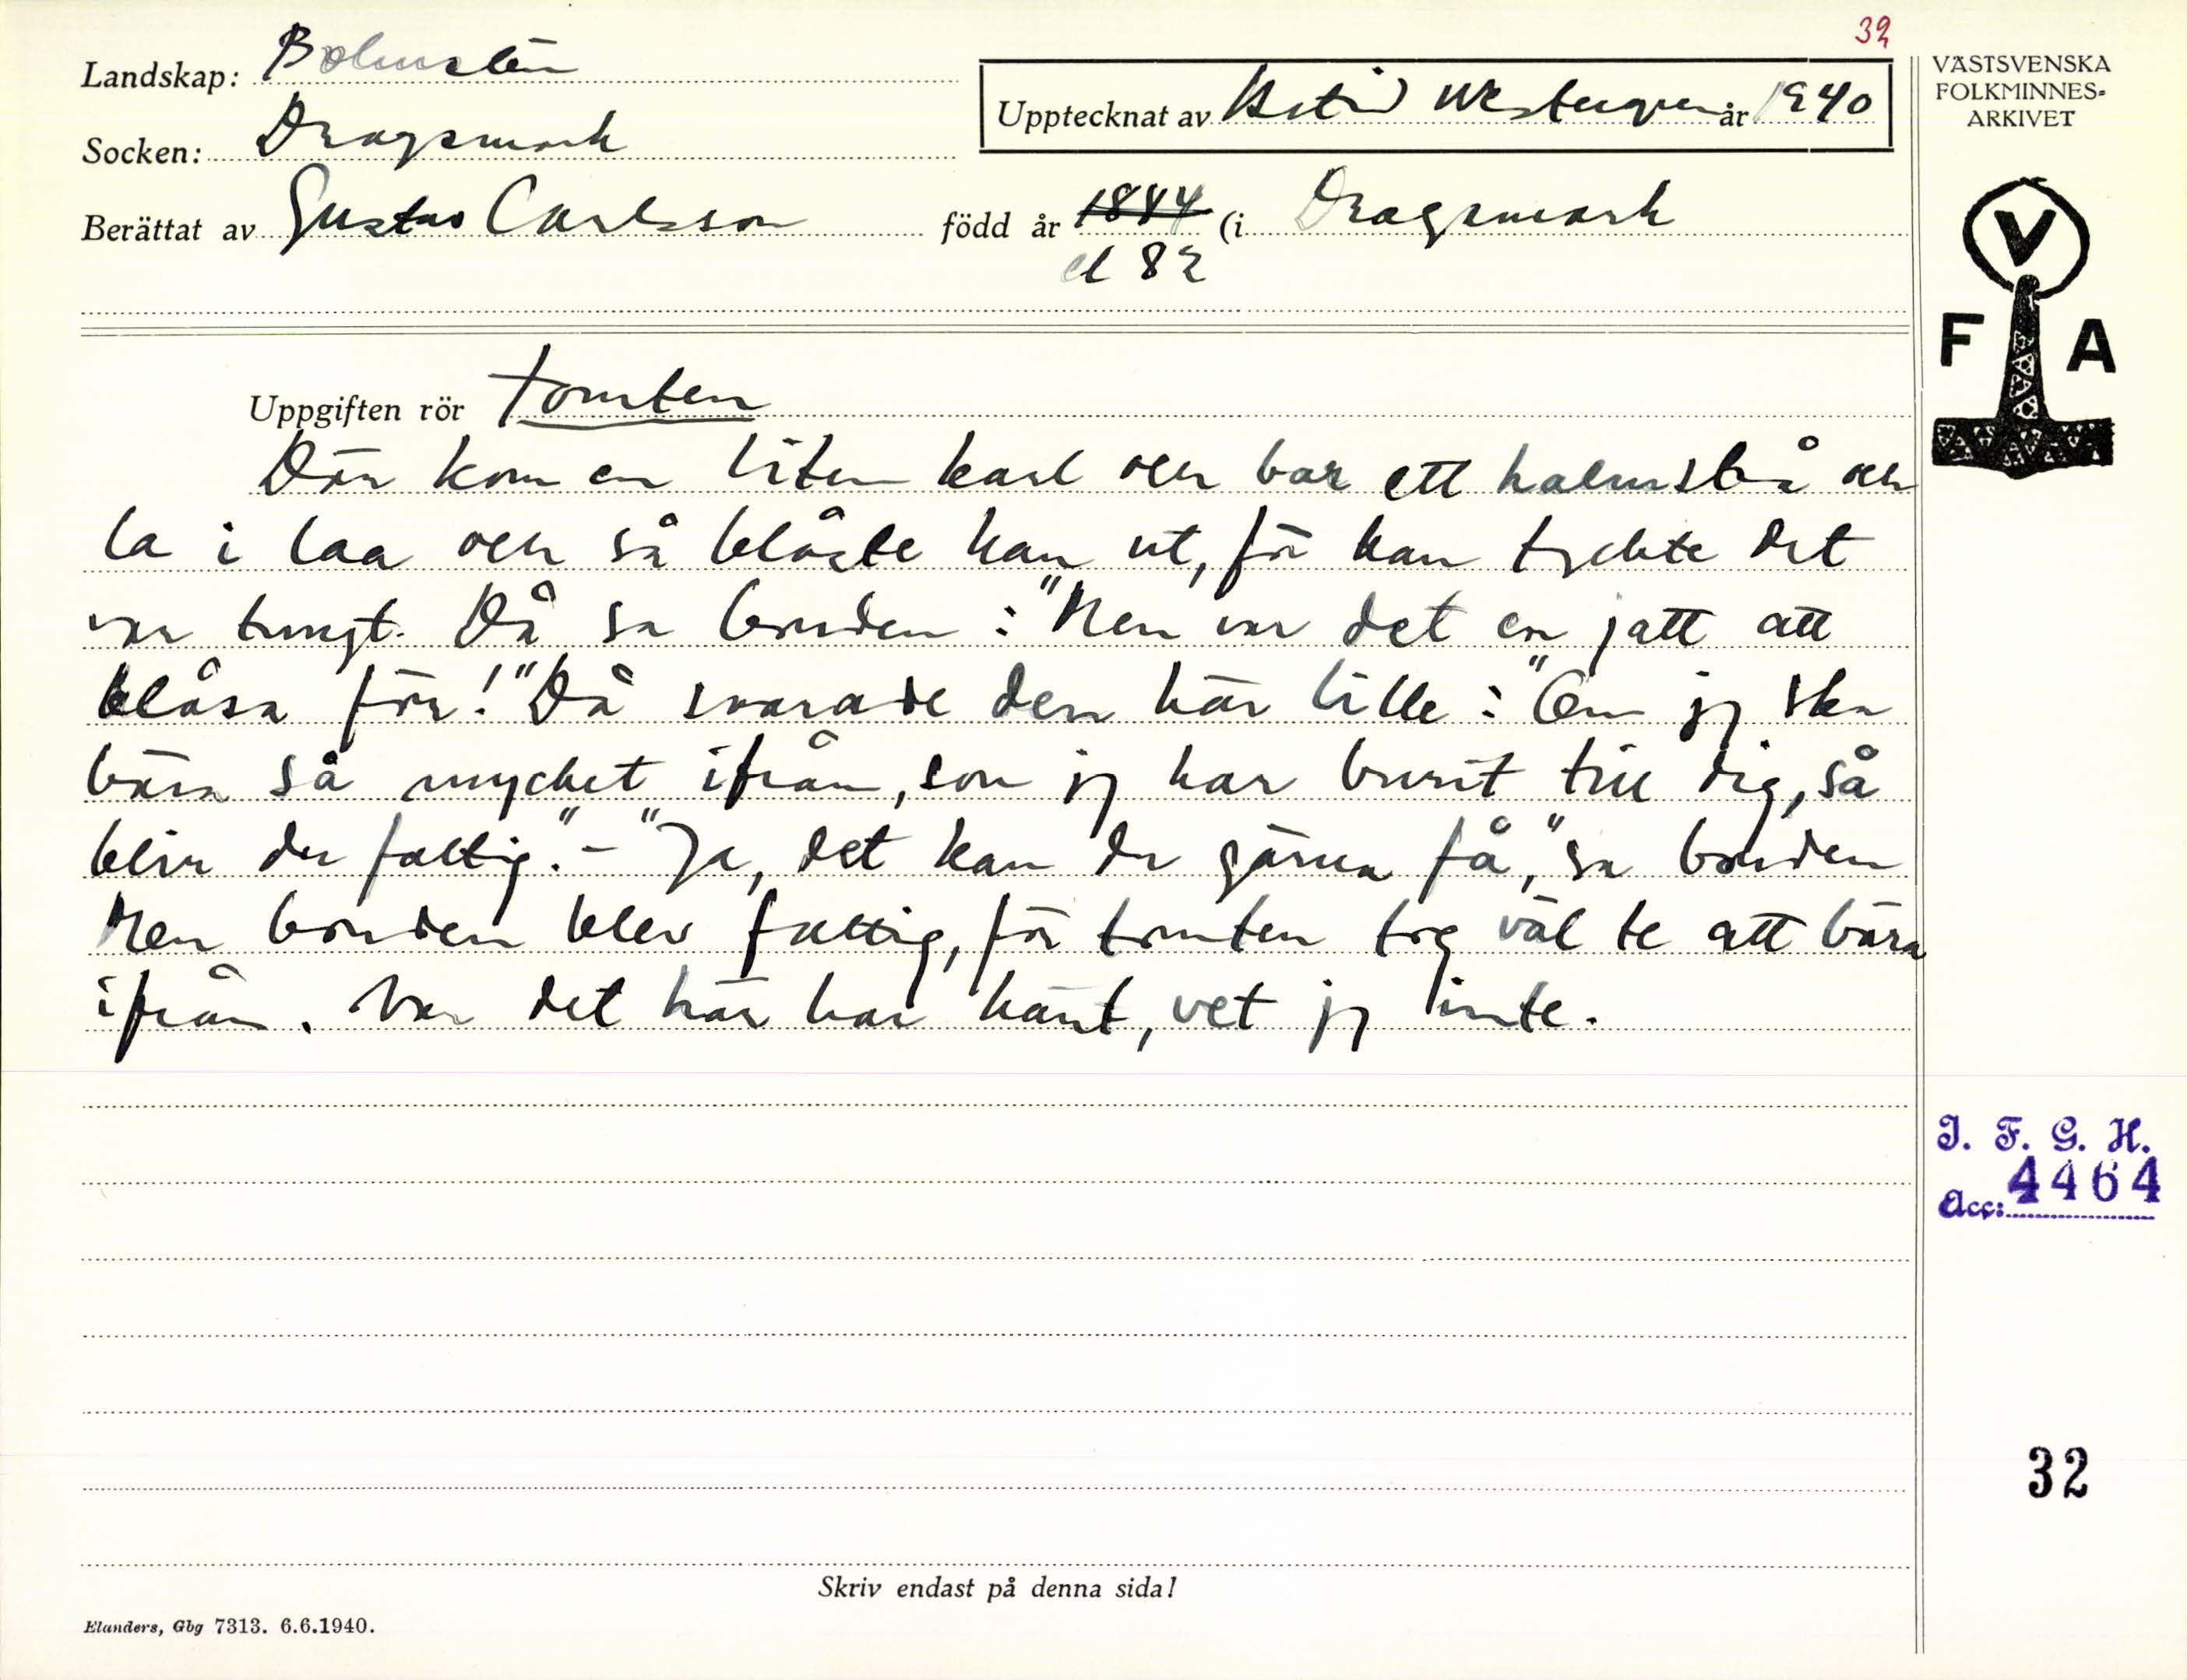 32
Landskap: Bohuslän
Upptecknat av Westergren år 1940
Socken: Dragsmark
Berättat av Gustav Carlsson född år 1884 (i Dragsmark
82
VÄSTSVENSKA
FOLKMINNES-
ARKIVET
V
F A
Uppgiften rör tomten
Där kom en liten karl och bar ett halmstrå och
la i laa och så blåste han ut, för han tyckte det
var tungt. Då sa bonden: "Men var det en jatt att
blåsa för!" Då svarade den här lille: "Om jg ska
bära så mycket ifrån, som jg har burit till dig, så
blir du fattig." - "Ja, det kan du gärna få," sa bonden
Men bonden blev fattig, för tomten tog väl te att bära
ifrån. Var det här har hänt, vet jg inte.
I. F. G. H.
Acc: 4464
32
Skriv endast på denna sida!
Elanders, Gbg 7313. 6.6.1940.